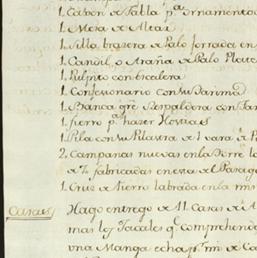 1. Caxon de Talla pa. ornamentos
1. Mesa de Altar
1. Silla brasera de Palo forrada en
1. Candil o Araña de Palo
1. Pulpito con Escalera
1. Confesionario con su Tarima
1. Banca gre. Espaldera con
1. fierro pa. hazer Hostias
1. Pila con su Pilavera de 1 vara de
2. Campanas nuevas en la Torre
de fabricadas en esta de
1. Cruz de fierro labrada en la
Casas Hago entrego de 11 Casas de
mas los Jacales qe. comprehende
una Manga echa pr. mi de